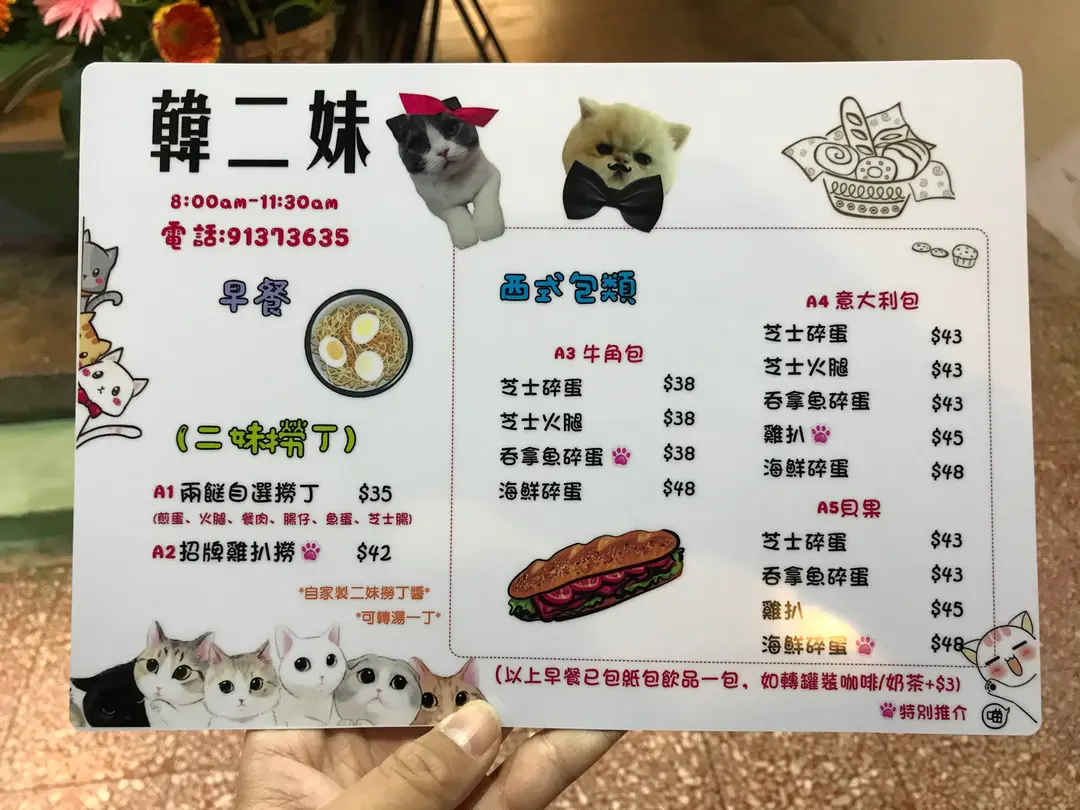 韓二妹
8:00am-11:30am
電話:91373635
早餐
(二妹撈丁)
A1 兩餸自選撈丁 $35
(煎蛋、火腿、餐肉、腸仔、魚蛋、芝士腸)
A2 招牌雞扒撈 $42
*自家製二妹撈丁醬*
*可轉湯一丁*
西式包類
A3 牛角包
芝士碎蛋 $38
芝士火腿 $38
吞拿魚碎蛋 $38
海鮮碎蛋 $48
A4 意大利包
芝士碎蛋 $43
芝士火腿 $43
吞拿魚碎蛋 $43
雞扒 $45
海鮮碎蛋 $48
A5 貝果
芝士碎蛋 $43
吞拿魚碎蛋 $43
雞扒 $45
海鮮碎蛋 $48
(以上早餐已包紙包飲品一包，如轉罐裝咖啡/奶茶+$3)
特別推介
喵